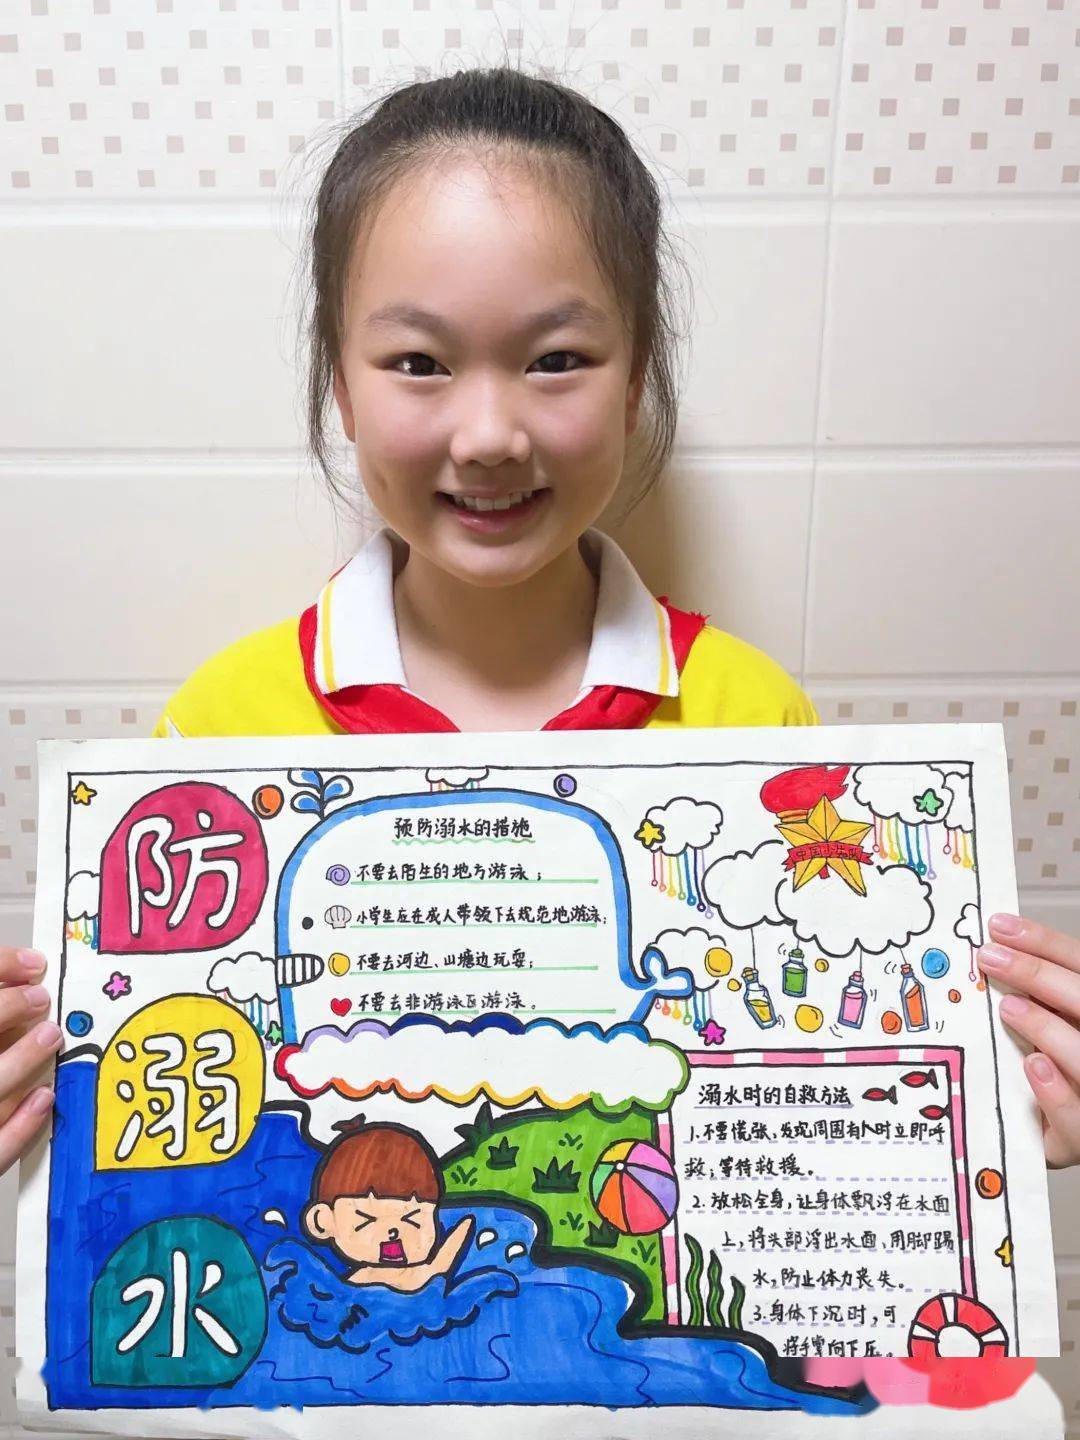 防
溺
水
预防溺水的措施
不要去陌生的地方游泳；
小学生应在成人带领下去规范地游泳；
不要去河边、山塘边玩耍；
不要去非游泳区游泳。
中国少先队
溺水时的自救方法
1.不要慌张，发现周围有人时立即呼
救；等待救援。
2.放松全身，让身体飘浮在水面
上，将头部浮出水面，用脚踢
水，防止体力丧失。
3.身体下沉时，可
将手掌向下压。